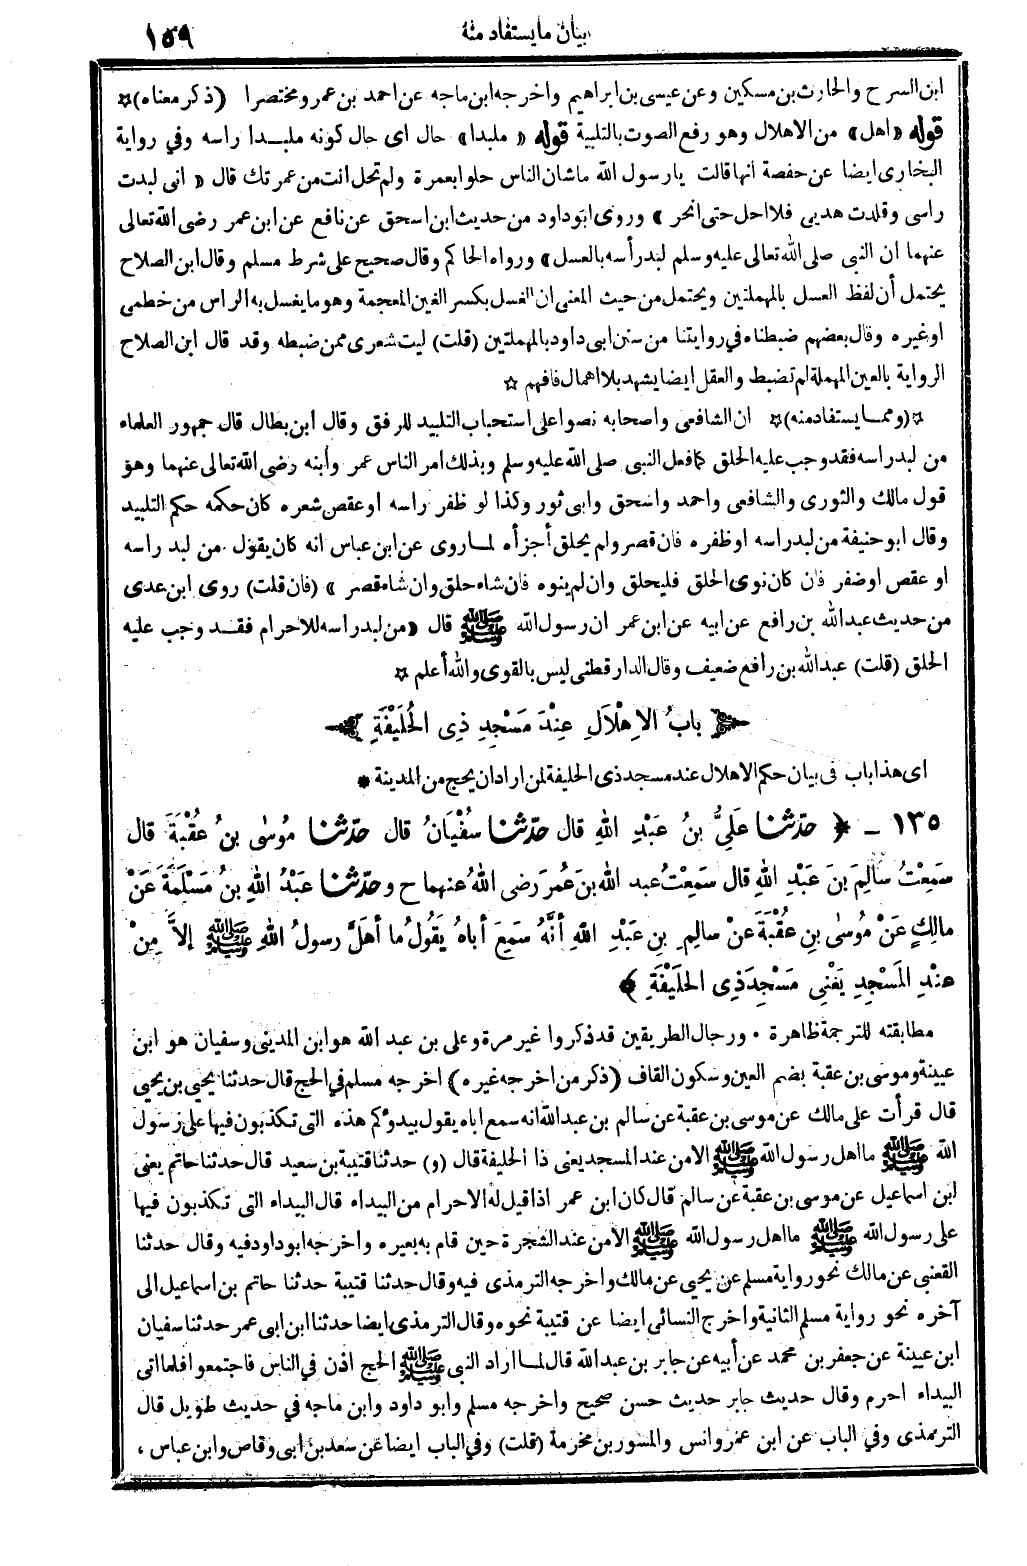 بيان ما يستفاد منه ١٥٩
ابن السرح والحارث بن مسكين وعن عيسى بن ابراهيم واخرجه ابن ماجه عن احمد بن عمرو مختصرا (ذكر معناه) ☆
قوله «اهل» من الاهلال وهو رفع الصوت بالتلبية قوله «ملبدا» حال اى حال كونه ملبدا راسه وفي رواية
البخارى ايضا عن حفصة انها قالت يارسول الله ماشان الناس حلوا بعمرة ولم تحل انت من عمرتك قال «انى لبدت
راسى وقلدت هديى فلا احل حتى انحر» وروى ابو داود من حديث ابن اسحق عن نافع عن ابن عمر رضى الله تعالى
عنهما ان النبى صلى الله تعالى عليه وسلم لبد رأسه بالعسل» ورواه الحاكم وقال صحيح على شرط مسلم وقال ابن الصلاح
يحتمل أن لفظ العسل بالمهملتين ويحتمل من حيث المعنى ان الغسل بكسر الغين المعجمة وهو ما يغسل به الراس من خطمى
او غيره وقال بعضهم ضبطناه في روايتنا من سنن ابى داود بالمهملتين (قلت) ليت شعرى ممن ضبطه وقد قال ابن الصلاح
الرواية بالعين المهملة لم تضبط والعقل ايضا يشهد بلا اهمال فافهم ☆
☆(ومما يستفاد منه)☆ ان الشافعى واصحابه نصوا على استحباب التلبيد للرفق وقال ابن بطال قال جمهور العلماء
من لبد راسه فقد وجب عليه الحلق كما فعل النبى صلى الله عليه وسلم وبذلك امر الناس عمر وابنه رضى الله تعالى عنهما وهو
قول مالك والثورى والشافعى واحمد واسحق وابى ثور وكذا لو ظفر راسه او عقص شعره كان حكمه حكم التلبيد
وقال ابو حنيفة من لبد راسه او ظفره فان قصر ولم يحلق أجزأه لما روى عن ابن عباس انه كان يقول من لبد راسه
او عقص او ضفر فان كان نوى الحلق فليحلق وان لم ينوه فان شاء حلق وان شاء قصر» (فان قلت) روى ابن عدى
من حديث عبد الله بن رافع عن ابيه عن ابن عمر ان رسول الله ﷺ قال «من لبد راسه للاحرام فقد وجب عليه
الحلق (قلت) عبد الله بن رافع ضعيف وقال الدارقطنى ليس بالقوى والله أعلم ☆
بابُ الاِهْلَالِ عِنْدَ مَسْجِدِ ذِى الحُلَيْفَةِ
اى هذا باب فى بيان حكم الاهلال عند مسجد ذى الحليفة لمن اراد ان يحج من المدينة *
١٣٥ ـ ﴿ حدّثنا عَلَىُّ بنُ عَبْدِ اللهِ قال حدّثنا سفْيَانُ قال حدّثنا مُوسٰى بنُ عُقْبَةَ قال
سَمِعْتُ سَالِمَ بنَ عَبْدِ اللهِ قال سَمِعْتُ عبد الله بنَ عُمرَ رضى اللهُ عنهما ح وحدّثنا عبْدُ اللهِ بنُ مَسْلَمَةَ عَنْ
مالِكٍ عَنْ مُوسٰى بنِ عُقْبَةَ عَنْ سالِمِ بنِ عَبْدِ اللهِ أنَّهُ سَمِعَ أباهُ يَقُولُ ما أهَلَّ رسولُ اللهِ ﷺ إلاَّ مِنْ
عنْدِ المَسْجِدِ يَعْنِى مَسْجِدَ ذِى الحلَيْفَةِ ﴾
مطابقته للترجمة ظاهرة . ورجال الطريقين قد ذكروا غير مرة وعلى بن عبد الله هو ابن المدينى وسفيان هو ابن
عيينة وموسى بن عقبة بضم العين وسكون القاف (ذكر من اخرجه غيره) اخرجه مسلم في الحج قال حدثنا يحيى بن يحيى
قال قرأت على مالك عن موسى بن عقبة عن سالم بن عبد الله انه سمع اباه يقول بيدوكم هذه التى تكذبون فيها على رسول
الله ﷺ ما اهل رسول الله ﷺ الا من عند المسجد يعنى ذا الحليفة قال (و) حدثنا قتيبة بن سعيد قال حدثنا حاتم يعنى
ابن اسماعيل عن موسى بن عقبة عن سالم قال كان ابن عمر اذا قيل له الاحرام من البيداء قال البيداء التى تكذبون فيها
على رسول الله ﷺ ما اهل رسول الله ﷺ الا من عند الشجرة حين قام به بعيره واخرجه ابو داود فيه وقال حدثنا
القعنبى عن مالك نحو رواية مسلم عن يحيى عن مالك واخرجه الترمذى فيه وقال حدثنا قتيبة حدثنا حاتم بن اسماعيل الى
آخره نحو رواية مسلم الثانية واخرج النسائى ايضا عن قتيبة نحوه وقال الترمذى ايضا حدثنا ابن ابى عمر حدثنا سفيان
ابن عيينة عن جعفر بن محمد عن أبيه عن جابر بن عبد الله قال لما اراد النبى ﷺ الحج اذن في الناس فاجتمعوا فلما اتى
البيداء احرم وقال حديث جابر حديث حسن صحيح واخرجه مسلم وابو داود وابن ماجه في حديث طويل قال
الترمذى وفي الباب عن ابن عمر وانس والمسور بن مخرمة (قلت) وفي الباب ايضا عن سعد بن ابى وقاص وابن عباس ،